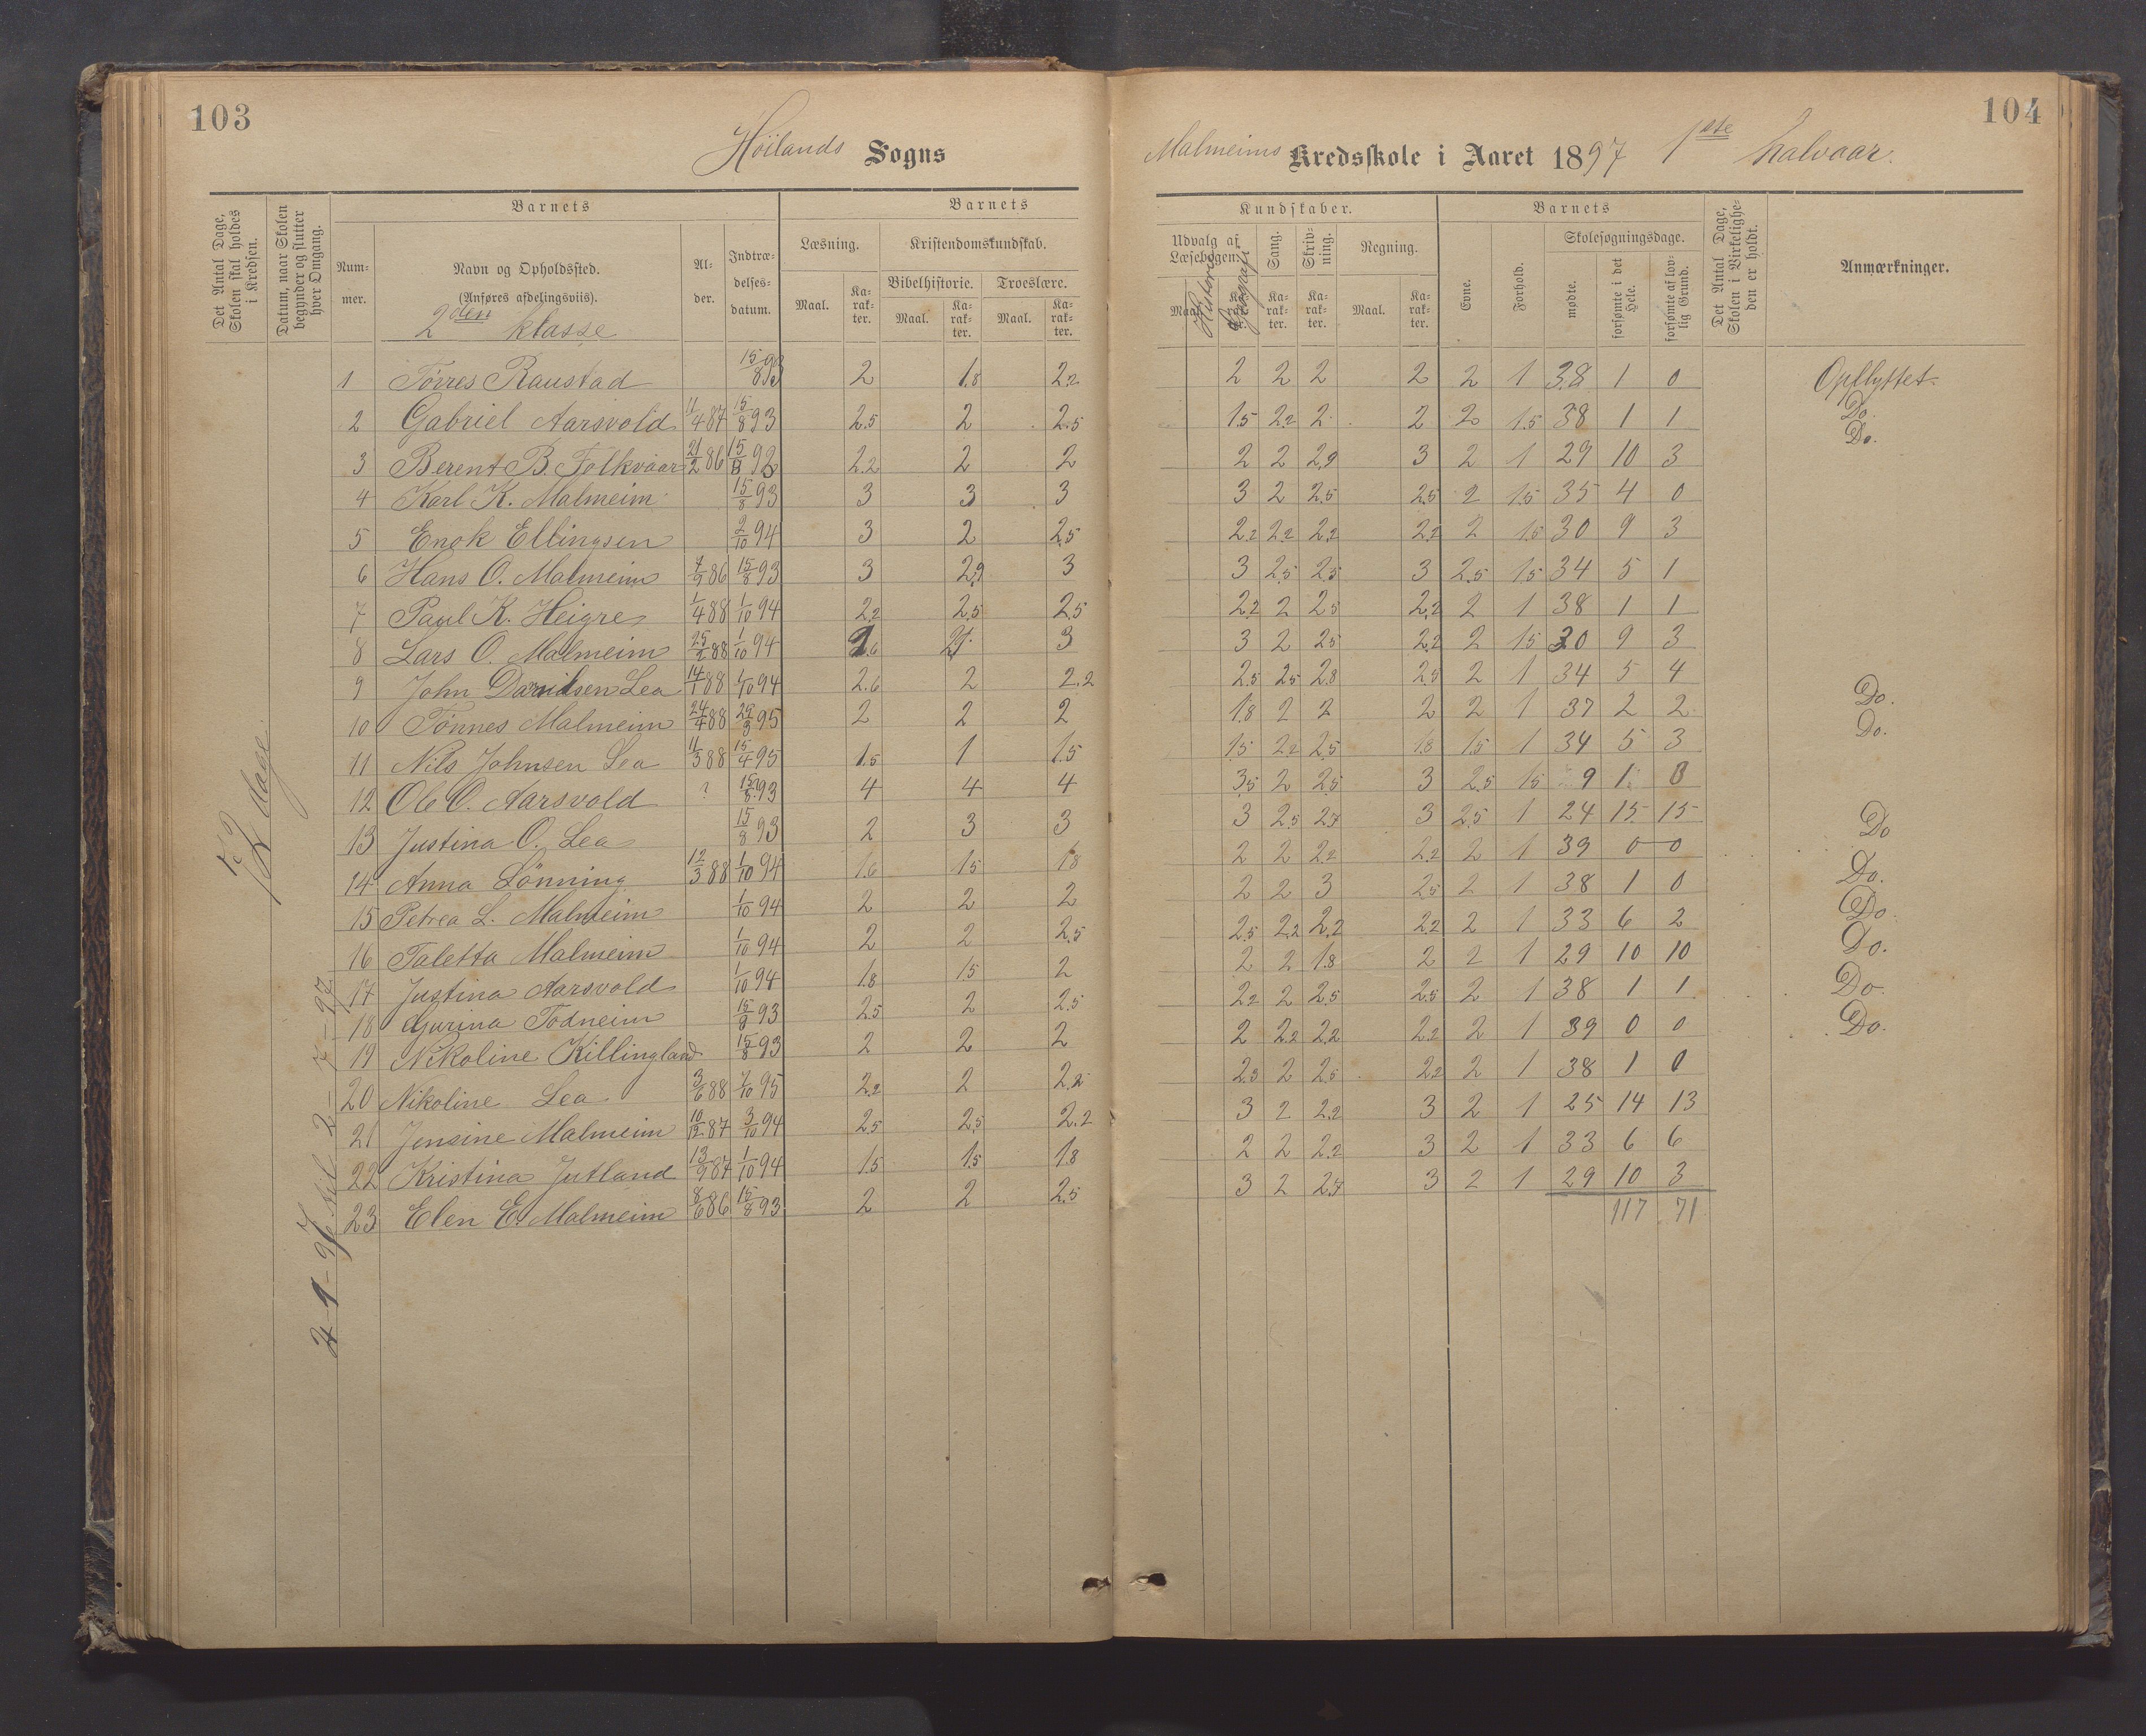 103
Höilands Sogns
Det Antal Dage, Skolen skal holdes i Kredsen.
Datum, naar Skolen begynder og slutter hver Omgang.
Barnets
Barnets
Num-mer.
Navn og Opholdssted.
(Anføres afdelingsviis).
2den klasse
Al-der.
Indtræ-delses-datum.
Læsning.
Kristendomskundskab.
Bibelhistorie. Troeslære.
Maal. Ka-rak-ter. Maal. Ka-rak-ter. Maal. Ka-rak-ter.
1 Törres Raustad 15/8 93 2 1.8 2.2
2 Gabriel Aarsvold 11/4 87 15/8 93 2.5 2 2.5
3 Berent B. Folkvoar 21/2 86 15/8 93 2.2 2 2
4 Karl K. Malmeim 15/8 93 3 3 3
5 Enok Ellingsen 2/10 94 3 2 2.5
6 Hans O. Malmeim 7/9 86 15/8 93 3 2.9 3
7 Paul K. Heigre 1/4 88 1/10 94 2.2 2.5 2.5
8 Lars O. Malmeim 25/2 88 1/10 94 2.6 3
9 John Davidsen Lea 14/1 88 1/10 94 2.6 2 2.2
10 Tönnes Malmeim 24/4 88 29/3 95 2 2 2
11 Nils Johnsen Lea 11/3 88 15/4 95 1.5 1 1.5
12 Ole O. Aarsvold ? 15/8 93 4 4 4
13 Justina O. Lea 15/8 93 2 3 3
14 Anna Lönning 12/3 88 1/10 94 1.6 1.5 1.8
15 Petrea L. Malmeim 1/10 94 2 2 2
16 Taletta Malmeim 1/10 94 2 2 2.5
17 Justina Aarsvold 1/10 94 1.8 1.5 2
18 Gurina Todneim 15/8 93 2.5 2 2.5
19 Nikoline Killingland 15/8 93 2 2 2
20 Nikoline Lea 3/6 88 7/10 95 2.2 2 2.2
21 Jensine Malmeim 10/12 87 3/10 94 2.5 2.5 2.2
22 Kristina Jutland 13/9 87 1/10 94 1.5 1.5 1.8
23 Elen E. Malmeim 8/6 86 15/8 93 2 2 2.5
72 dage.
til 2-7-97
104
Malmeims Kredsskole i Aaret 1897 1ste halvaar.
Kundskaber.
Barnets
Udvalg af Læsebogen.
Historie
Geografi
Sang.
Skriv-ning.
Regning.
Evne.
Forhold.
Skolesøgningsdage.
mødte.
forsømte i det Hele.
forsømte af lov-lig Grund.
Det Antal Dage, Skolen i Virkelighe-den er holdt.
Anmærkninger.
Maal. Ka-rak-ter. Ka-rak-ter. Ka-rak-ter. Maal. Ka-rak-ter.
2 2 2 2 2 1 38 1 0 Opflyttet.
1.5 2.2 2 2 2 1.5 38 1 1 Do.
2 2 2.9 3 2 1 29 10 3 Do.
3 2 2.5 2.5 2 1.5 35 4 0
2.2 2.2 2.2 2.2 2 1.5 30 9 3
3 2.5 2.5 3 2.5 1.5 34 5 1
2.2 2 2.5 2.2 2 1 38 1 1
3 2 2.5 2.2 2 1.5 30 9 3
2.5 2.5 2.8 2.5 2 1 34 5 4
1.8 2 2 2 2 1 37 2 2 Do.
1.5 2.2 2.5 1.8 1.5 1 34 5 3 Do.
3.5 2 2.5 3 2.5 1.5 9 1
3 2.5 2.7 3 2.5 1 24 15 15
2 2 2.2 2.2 2 1 39 0 0 Do
2 2 3 2.5 2 1 38 1 0 Do.
2.5 2.2 2.2 2.2 2 1 33 6 2 Do.
2 2 1.8 2 2 1 29 10 10 Do.
2.2 2 2.5 2.5 2 1 38 1 1 Do.
2 2.2 2.2 2.2 2 1 39 0 0 Do.
2.3 2 2.5 2.2 2 1 38 1 0
3 2 2.2 3 2 1 25 14 13
2 2 2.2 3 2 1 33 6 6
3 2 2.7 3 2 1 29 10 3
117 71